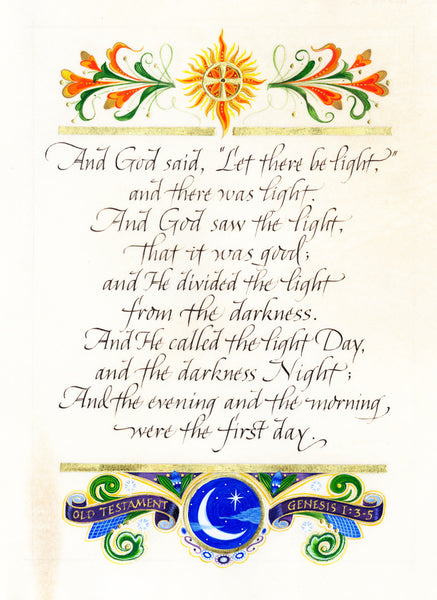 And God said, "Let there be light,"
and there was light.
And God saw the light,
that it was good;
and He divided the light
from the darkness.
And He called the light Day,
and the darkness Night;
And the evening and the morning
were the first day.
OLD TESTAMENT
GENESIS 1:3-5